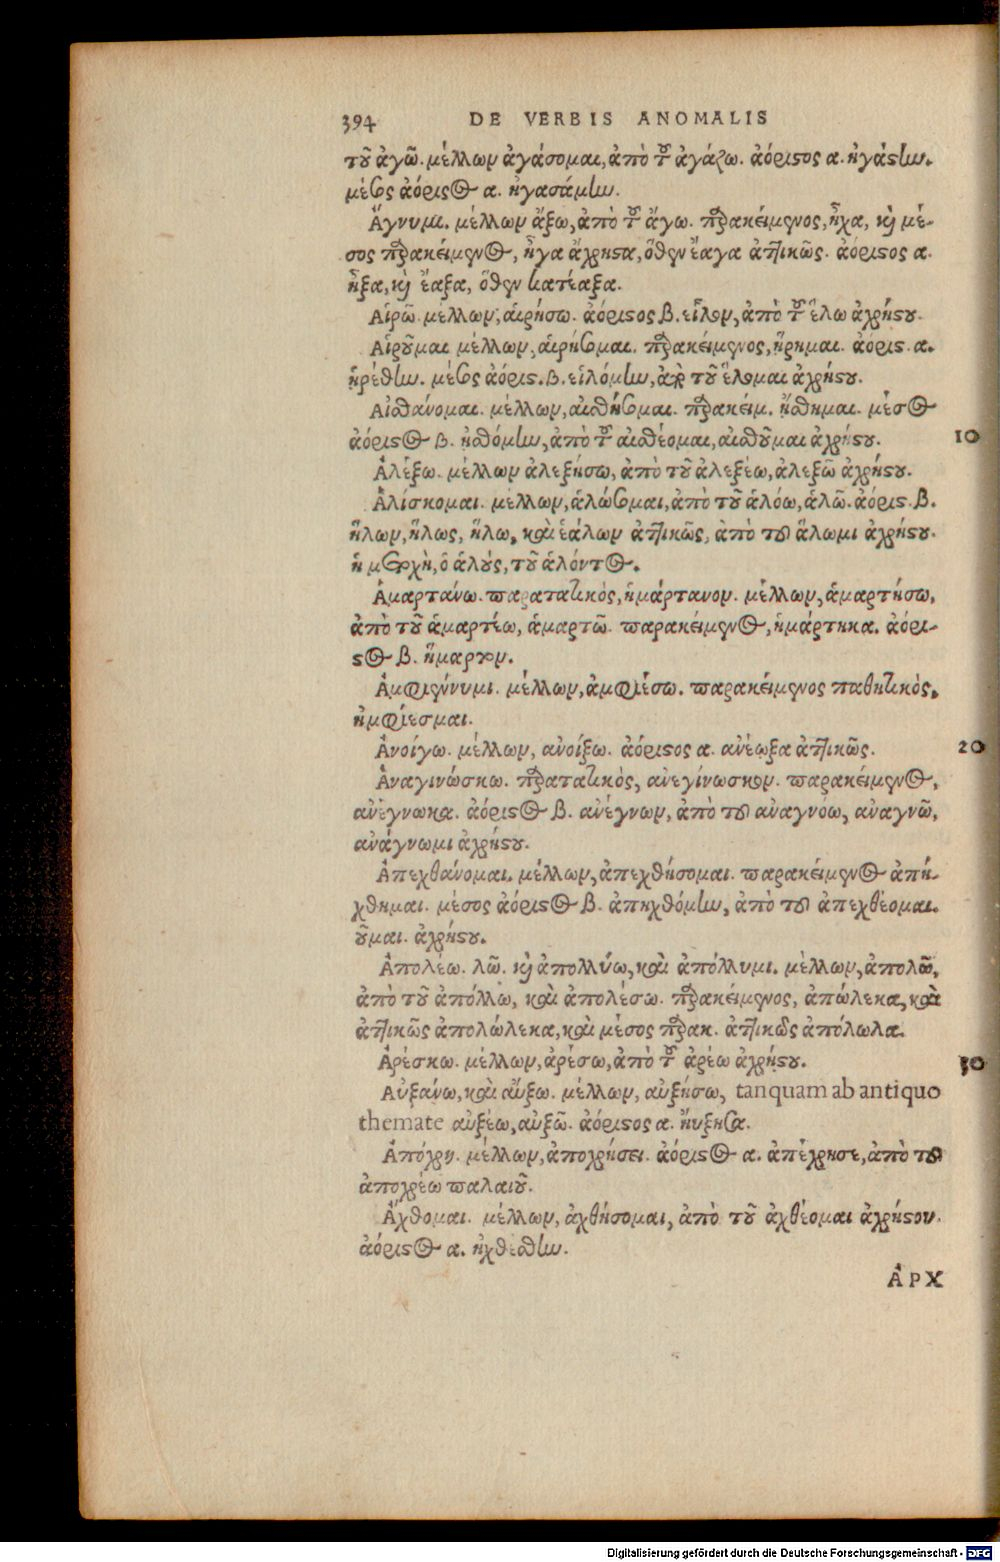 394 DE VERBIS ANOMALIS
τοῦ ἀγῶ. μέλλων ἀγάσομαι, ἀπὸ τοῦ ἀγάζω. ἀόριστος α. ἠγάσθην.
μέσος ἀόριστος α. ἠγασάμην.
Ἄγνυμι. μέλλων ἄξω, ἀπὸ τοῦ ἄγω. παρακείμενος, ἦχα, καὶ μέ-
σος παρακείμενος, ἦγα ἄχρηστα, ὅθεν ἔαγα ἀττικῶς. ἀόριστος α.
ἦξα, καὶ ἔαξα, ὅθεν κατέαξα.
Αἱρῶ μέλλων, αἱρήσω. ἀόριστος β. εἷλον, ἀπὸ τοῦ ἕλω ἀχρήστου.
Αἱροῦμαι μέλλων, αἱρήσομαι. παρακείμενος, ᾕρημαι. ἀόριστ. α.
ᾑρέθην. μέσος ἀόριστ. β. εἱλόμην, ἀπὸ τοῦ ἕλομαι ἀχρήστου.
Αἰσθάνομαι. μέλλων, αἰσθήσομαι. παρακείμ. ᾔσθημαι. μέσος
ἀόριστος β. ᾐσθόμην, ἀπὸ τοῦ αἰσθέομαι, αἰσθοῦμαι ἀχρήστου. 10
Ἀλέξω. μέλλων ἀλεξήσω, ἀπὸ τοῦ ἀλεξέω, ἀλεξῶ ἀχρήστου.
Ἁλίσκομαι. μέλλων, ἁλώσομαι, ἀπὸ τοῦ ἁλόω, ἁλῶ. ἀόριστ. β.
ἥλων, ἥλως, ἥλω, καὶ ἑάλων ἀττικῶς, ἀπὸ τοῦ ἅλωμι ἀχρήστου.
ἡ μετοχὴ, ὁ ἁλοὺς, τοῦ ἁλόντος.
Ἁμαρτάνω. παρατατικὸς, ἡμάρτανον. μέλλων, ἁμαρτήσω,
ἀπὸ τοῦ ἁμαρτέω, ἁμαρτῶ. παρακείμενος, ἡμάρτηκα. ἀόρι-
στος β. ἥμαρτον.
Ἀμφιέννυμι. μέλλων, ἀμφιέσω. παρακείμενος παθητικὸς,
ἠμφίεσμαι.
Ἀνοίγω. μέλλων, ἀνοίξω. ἀόριστος α. ἀνέῳξα ἀττικῶς. 20
Ἀναγινώσκω. παρατατικὸς, ἀνεγίνωσκον. παρακείμενος,
ἀνέγνωκα. ἀόριστος β. ἀνέγνων, ἀπὸ τοῦ ἀναγνοω, ἀναγνῶ,
ἀνάγνωμι ἀχρήστου.
Ἀπεχθάνομαι. μέλλων, ἀπεχθήσομαι. παρακείμενος ἀπή-
χθημαι. μέσος ἀόριστος β. ἀπηχθόμην, ἀπὸ τοῦ ἀπεχθέομαι.
οῦμαι. ἀχρήστου.
Ἀπολέω. λῶ. καὶ ἀπολλύω, καὶ ἀπόλλυμι. μέλλων, ἀπολῶ,
ἀπὸ τοῦ ἀπόλλω, καὶ ἀπολέσω. παρακείμενος, ἀπώλεκα, καὶ
ἀττικῶς ἀπολώλεκα, καὶ μέσος παρακ. ἀττικῶς ἀπόλωλα.
Ἀρέσκω. μέλλων, ἀρέσω, ἀπὸ τοῦ ἀρέω ἀχρήστου. 30
Αὐξάνω, καὶ αὔξω. μέλλων, αὐξήσω, tanquam ab antiquo
themate αὐξέω, αὐξῶ. ἀόριστος α. ηὔξησα.
Ἀπόχρη. μέλλων, ἀποχρήσει. ἀόριστος α. ἀπέχρησε, ἀπὸ τοῦ
ἀποχρέω παλαιοῦ.
Ἄχθομαι. μέλλων, ἀχθήσομαι, ἀπὸ τοῦ ἀχθέομαι ἀχρήστου.
ἀόριστος α. ἠχθέσθην.
ἈΡΧ
Digitalisierung gefördert durch die Deutsche Forschungsgemeinschaft - DFG